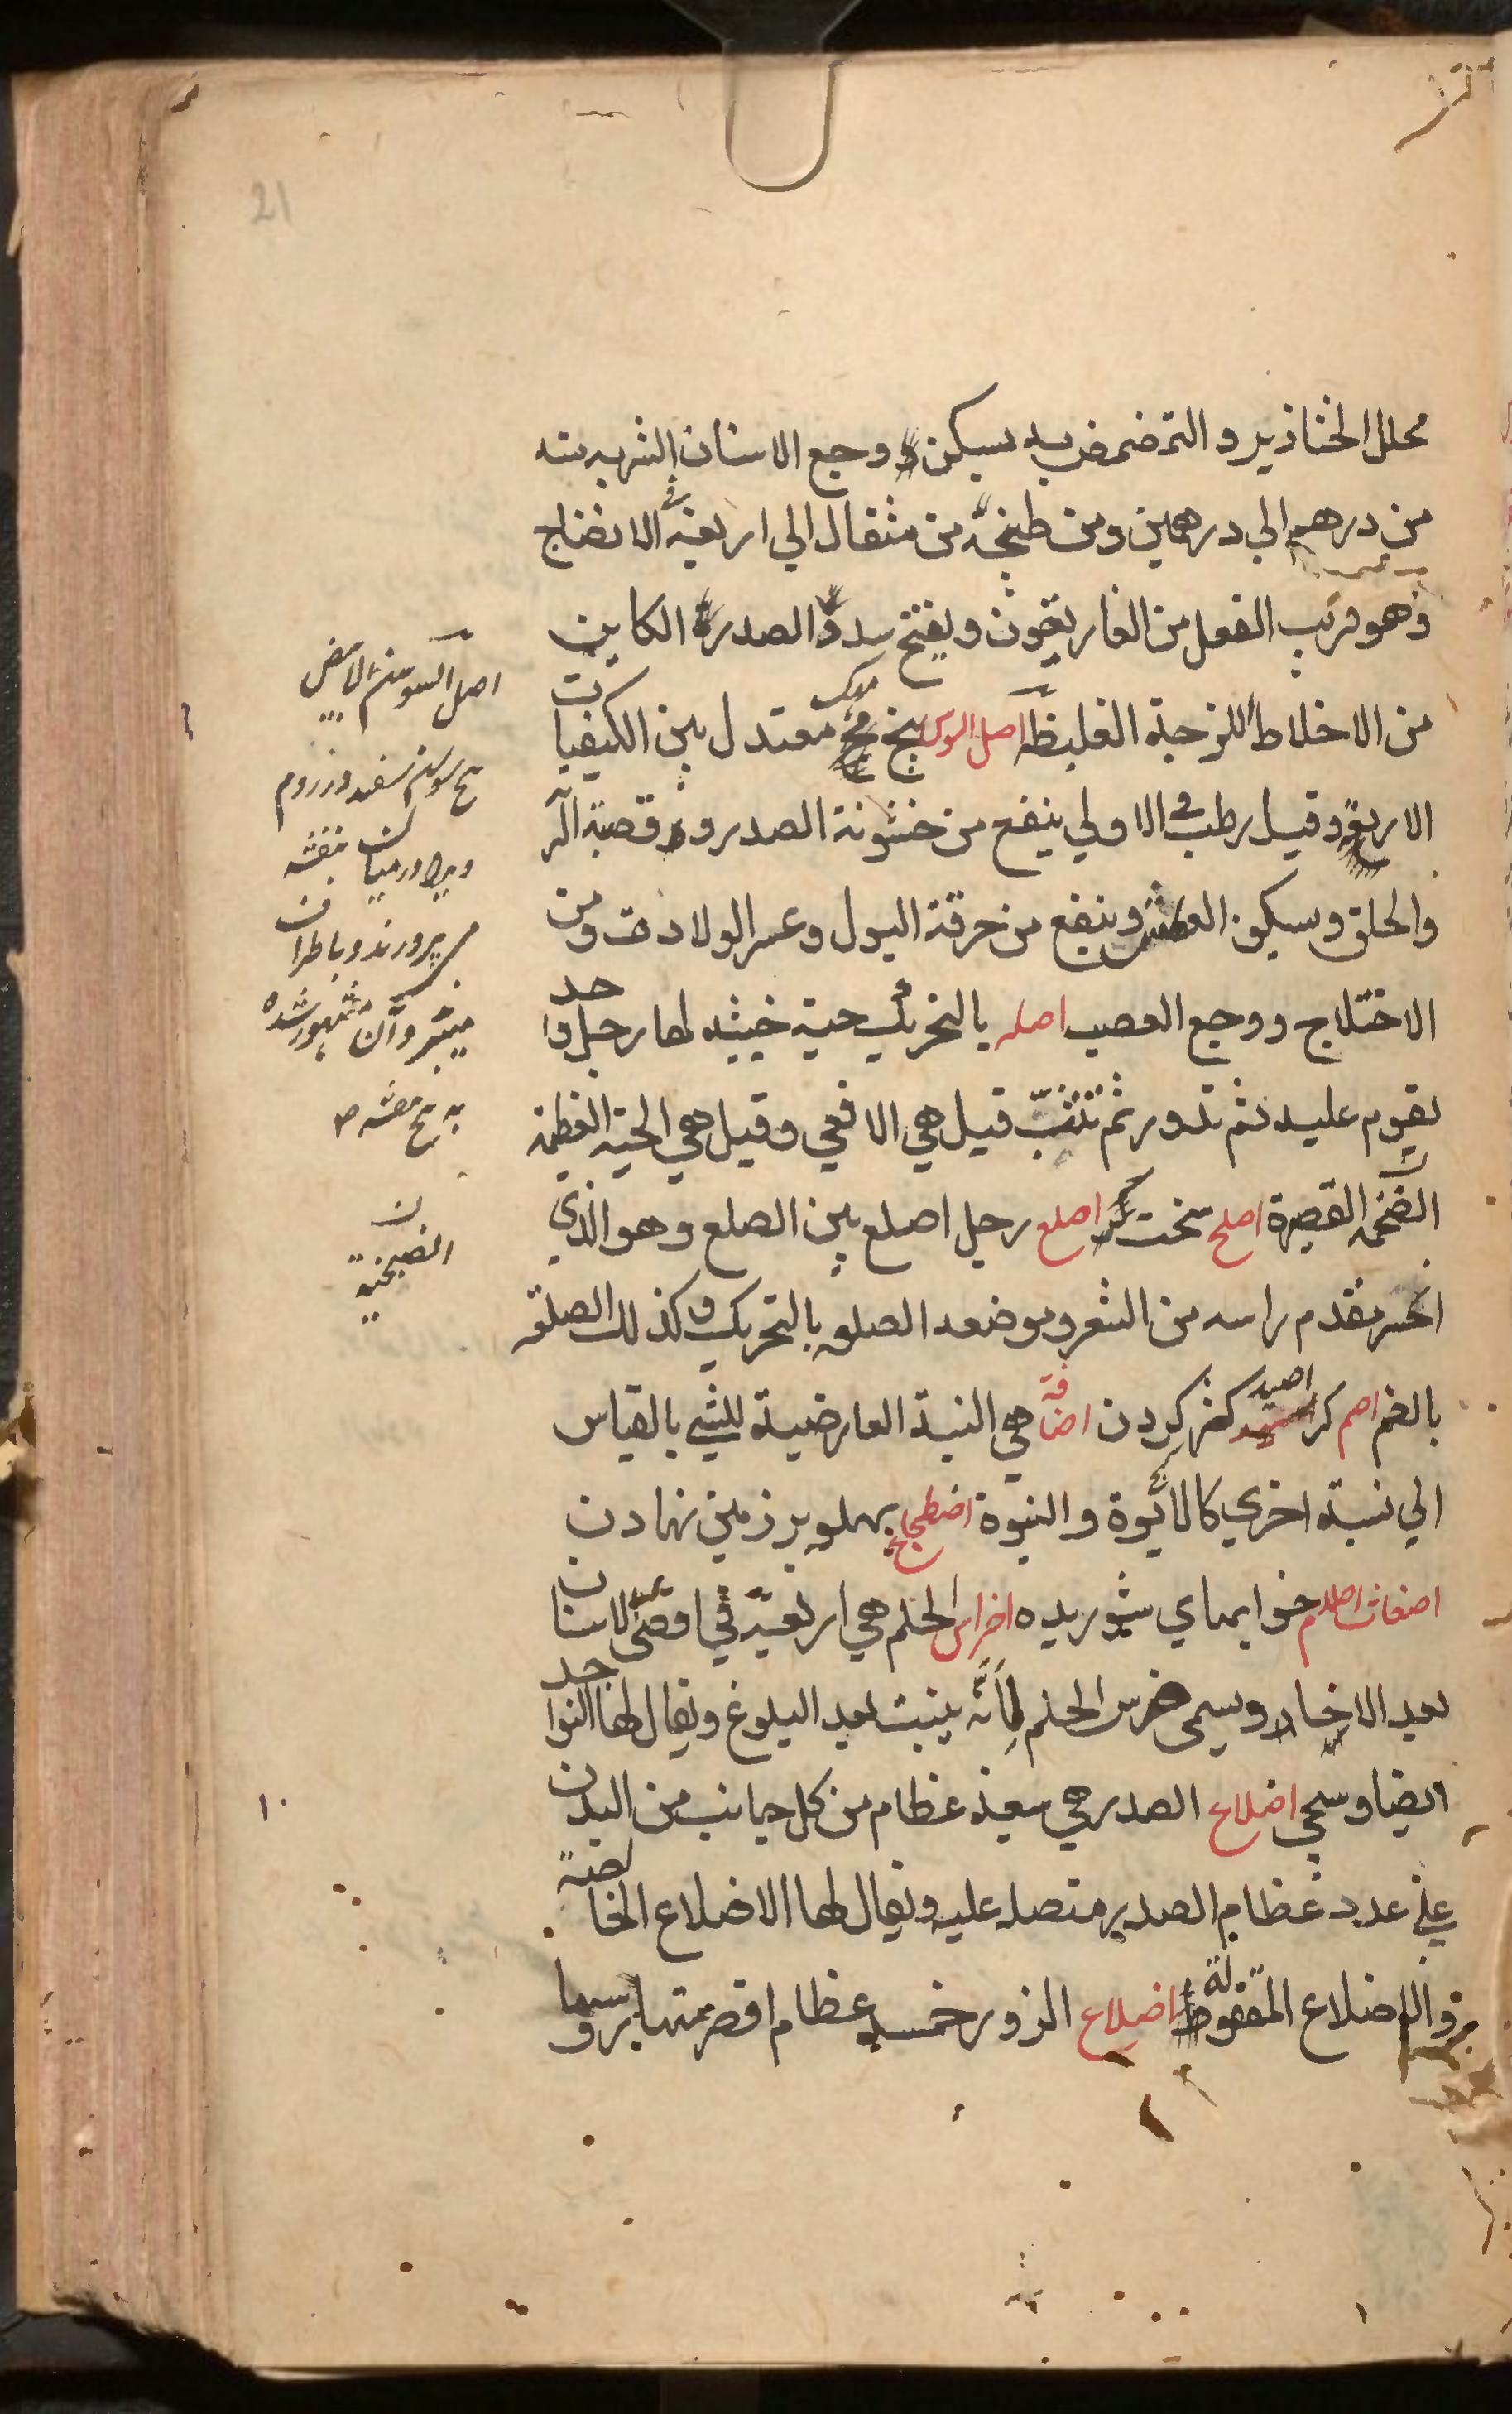 21
محلل الخنازير و التمضمض به يسكن وجع الاسنان الشربة منه
من درهم الي درهمين ومن طبيخه من مثقال الي اربعة في الانضاج
وهو قريب الفعل من الغاريقون و يفتح سدد الصدر الكاين
من الاخلاط اللزجة الغليظة اصل السوس بيخ مهک معتدل بين الكيفيات
الاربع وقيل رطب في الاولي ينفع من خشونة الصدر و قصبة الر
والحلق و سكون العطش وينفع من حرقة البول وعسر الولادت ومن
الاختلاج ووجع العصب اصله بالتحريك حية خبيثه لها رجل واحد
يقوم عليه ثم تدور ثم تثب قيل هي الافعي وقيل هي الحية العظيمة
الضخمة القصيرة اصلح سخت کر اصلع رجل اصلع بين الصلع وهو الذي
انحسر مقدم راسه من الشعر و موضعه الصلعه بالتحريك و كذلك الصلعة
بالضم اصم کر اصيد کژ کردن اضافة هي النسبة العارضية للشي بالقياس
الي نسبة اخري كالابوة والبنوة اضطجاع پهلو بر زمين نهادن
اضغاث احلام خوابهاي شوريده اضراس الحلم هي اربعة في اقصي الاسنان
بعد الارحا و يسمي ضرس الحلم لانه ينبت بعد البلوغ ويقال لها النواجد
ايضا وسيجي اضلاع الصدر هي سبعة عظام من كل جانب من البدن
علي عدد عظام الصدر متصله عليه ويقال لها الاضلاع الخالصة
والاضلاع المقفولة اضلاع الزور خمسه عظام اقصر منها بروسها
اصل السوسن الابيض
بيخ سوسن سفيد و زردوم
ويرا درميان بنفشه
مي پرورند و با طراف
ميبرند و آن مشهور شده
به بيخ بنفشه
١٠